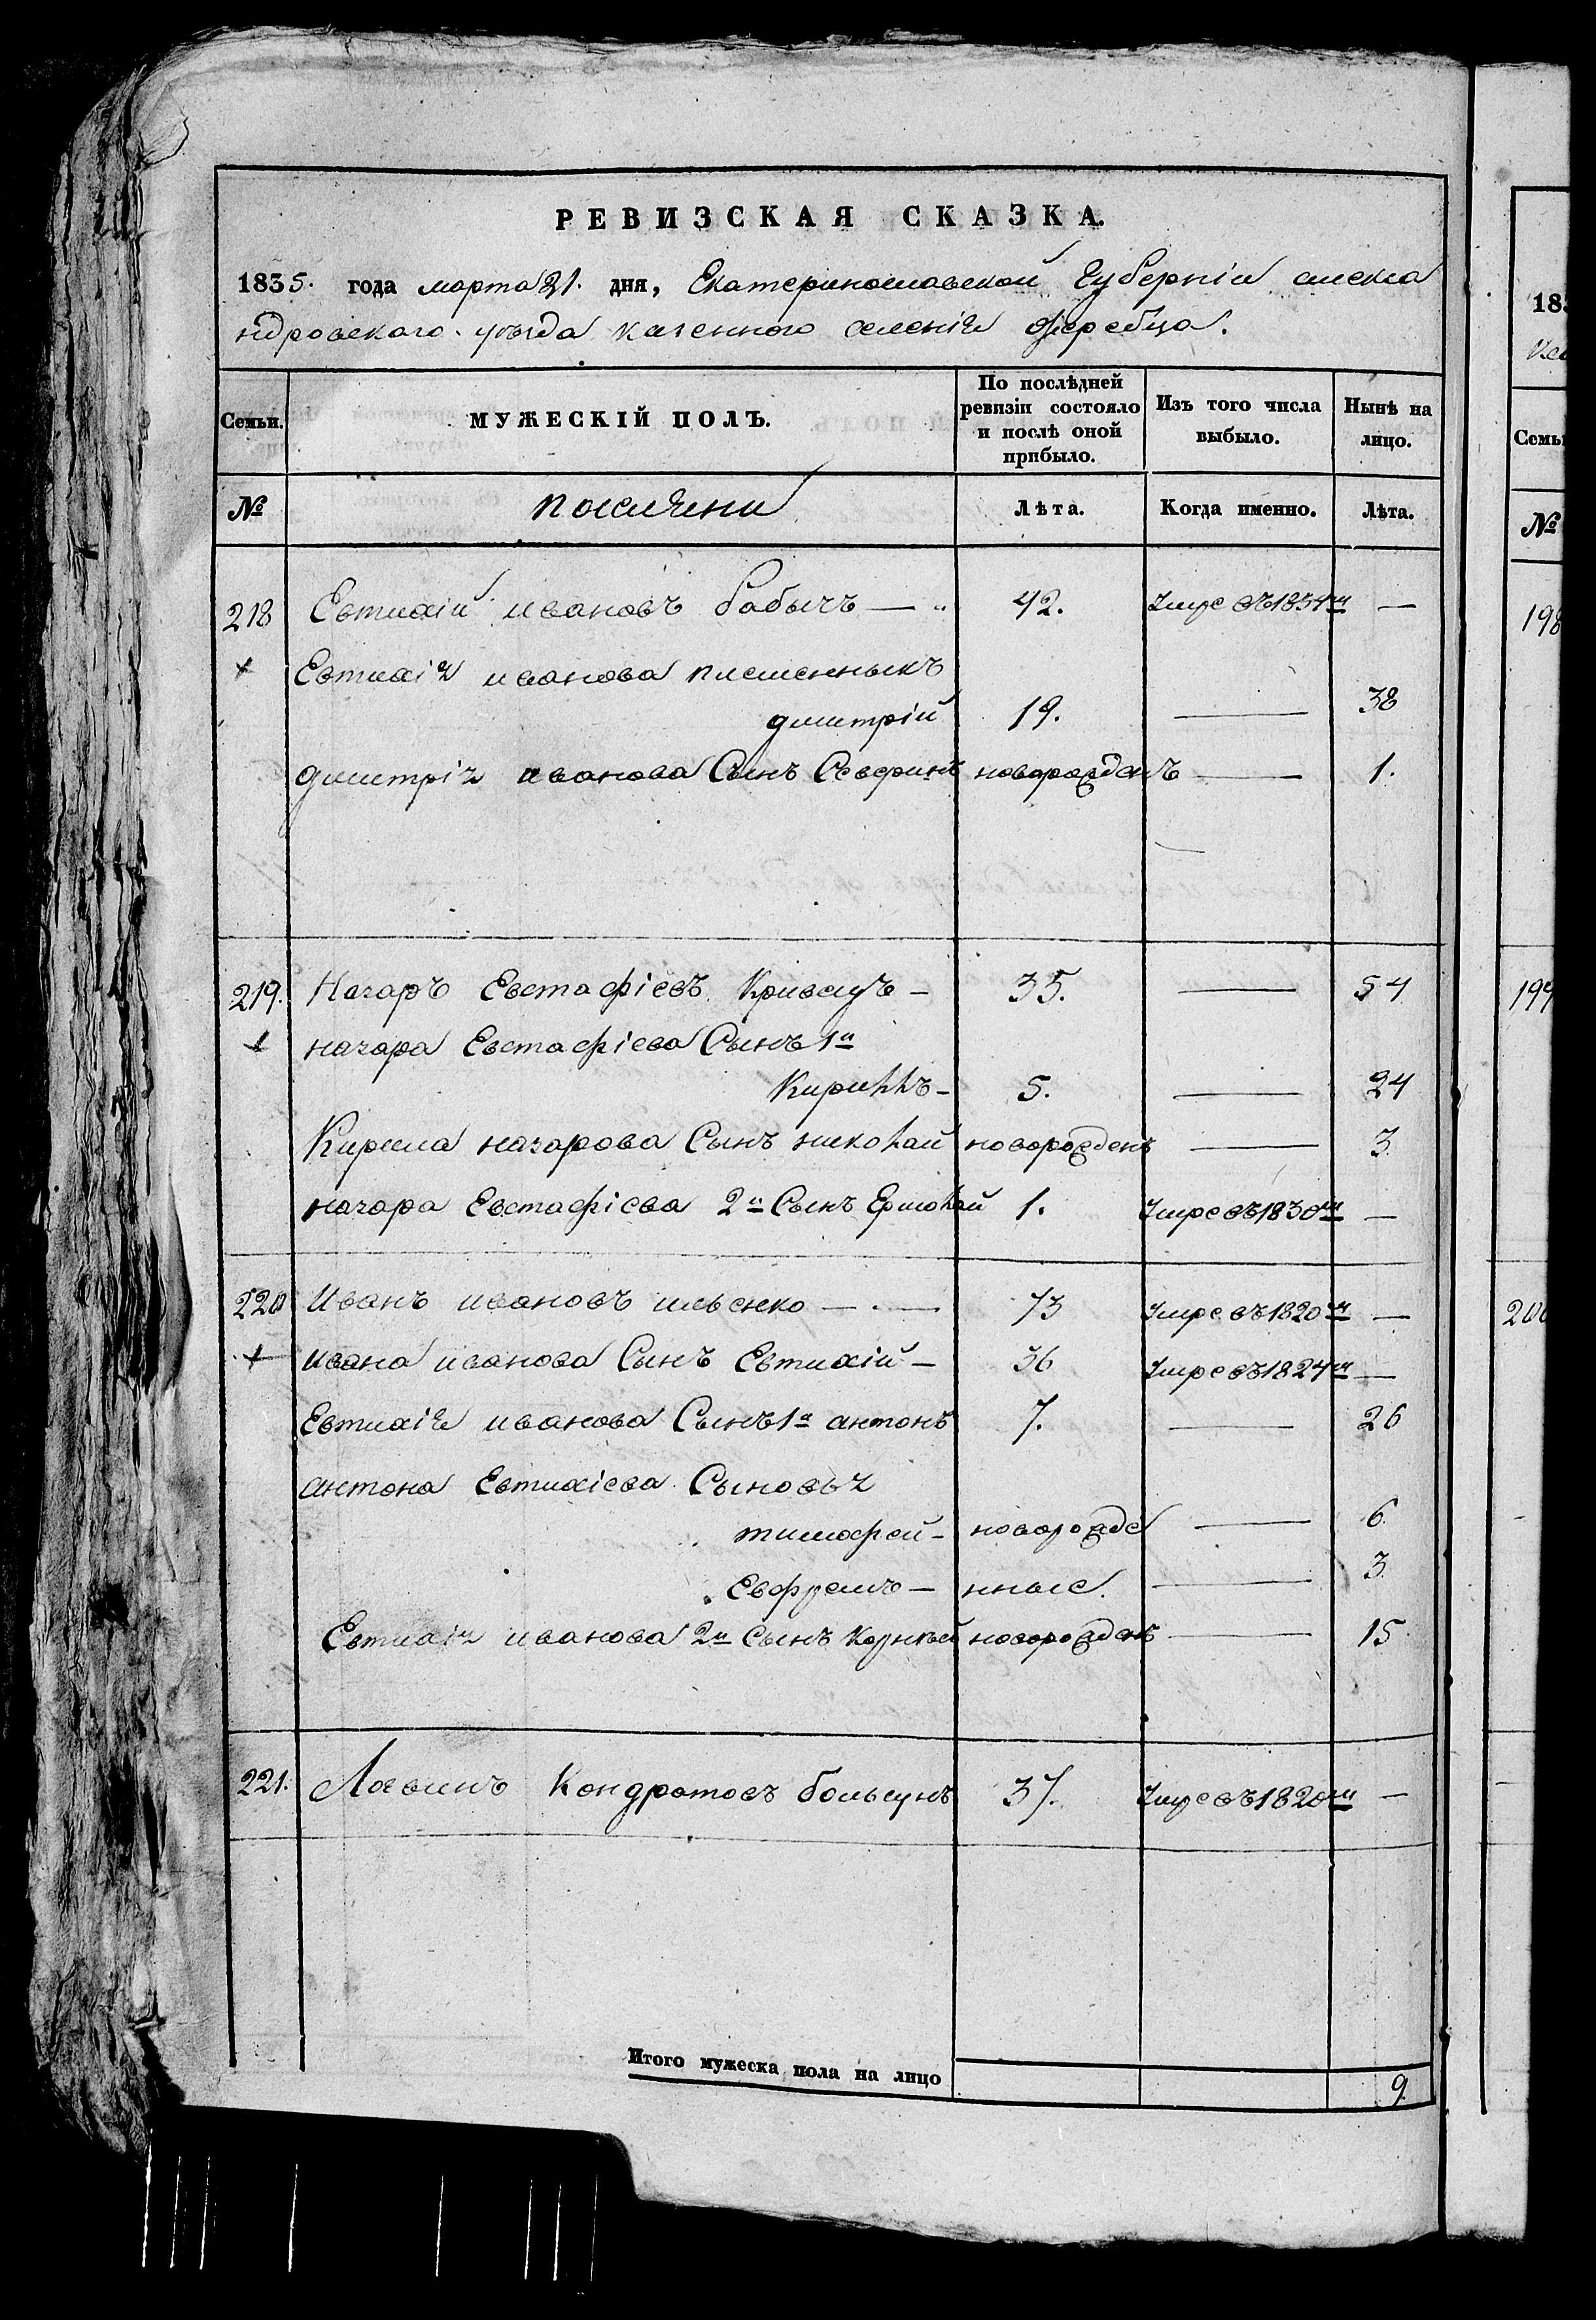 РЕВИЗСКАЯ СКАЗКА.
1835. года марта 21. дня, Екатеринославской Губерніи алекса
ндровского уѣзда казенного селенія Жеребца.
Семьи. МУЖЕСКІЙ ПОЛЪ. По послѣдней ревизіи состояло и послѣ оной прибыло. Изъ того числа выбыло. Нынѣ на лицо.
№ поселяни Лѣта. Когда именно. Лѣта.
218 Евтихій ивановъ бабычъ — 42. Умре въ 1834м —
Евтихія иванова племенныкъ
дмитрій 19. — 38
дмитрія иванова Сынъ Северинъ новорожденъ — 1.
219. Назаръ Евстафіевъ Кривецъ — 35. — 54
назара Евстафіева Сынъ 1й
Кирилъ — 5. — 24
Кирила назарова Сынъ николай новорожденъ — 3.
назара Евстафіева 2й Сынъ Ермолай 1. Умре въ 1830м —
220 Иванъ ивановъ ильенко — 73 Умре въ 1820м —
ивана иванова Сынъ Евтихій — 36 Умре въ 1824м —
Евтихія иванова Сынъ 1й антонъ 7. — 26
антона Евтихіева Сыновья
тимофей — новорожде — 6.
Евфремъ — нные. — 3.
Евтихія иванова 2й Сынъ Корнѣй новорожденъ — 15
221. Логвинъ Кондратовъ больгунъ 37. Умре въ 1820м —
Итого мужеска пола на лицо 9.
183
Семьи
№
198
199
200